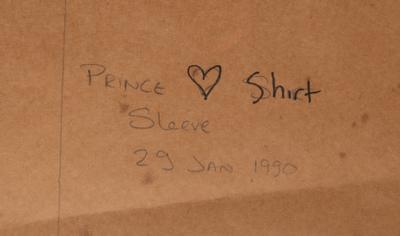 PRINCE ♡ Shirt
Sleeve
29 JAN 1990